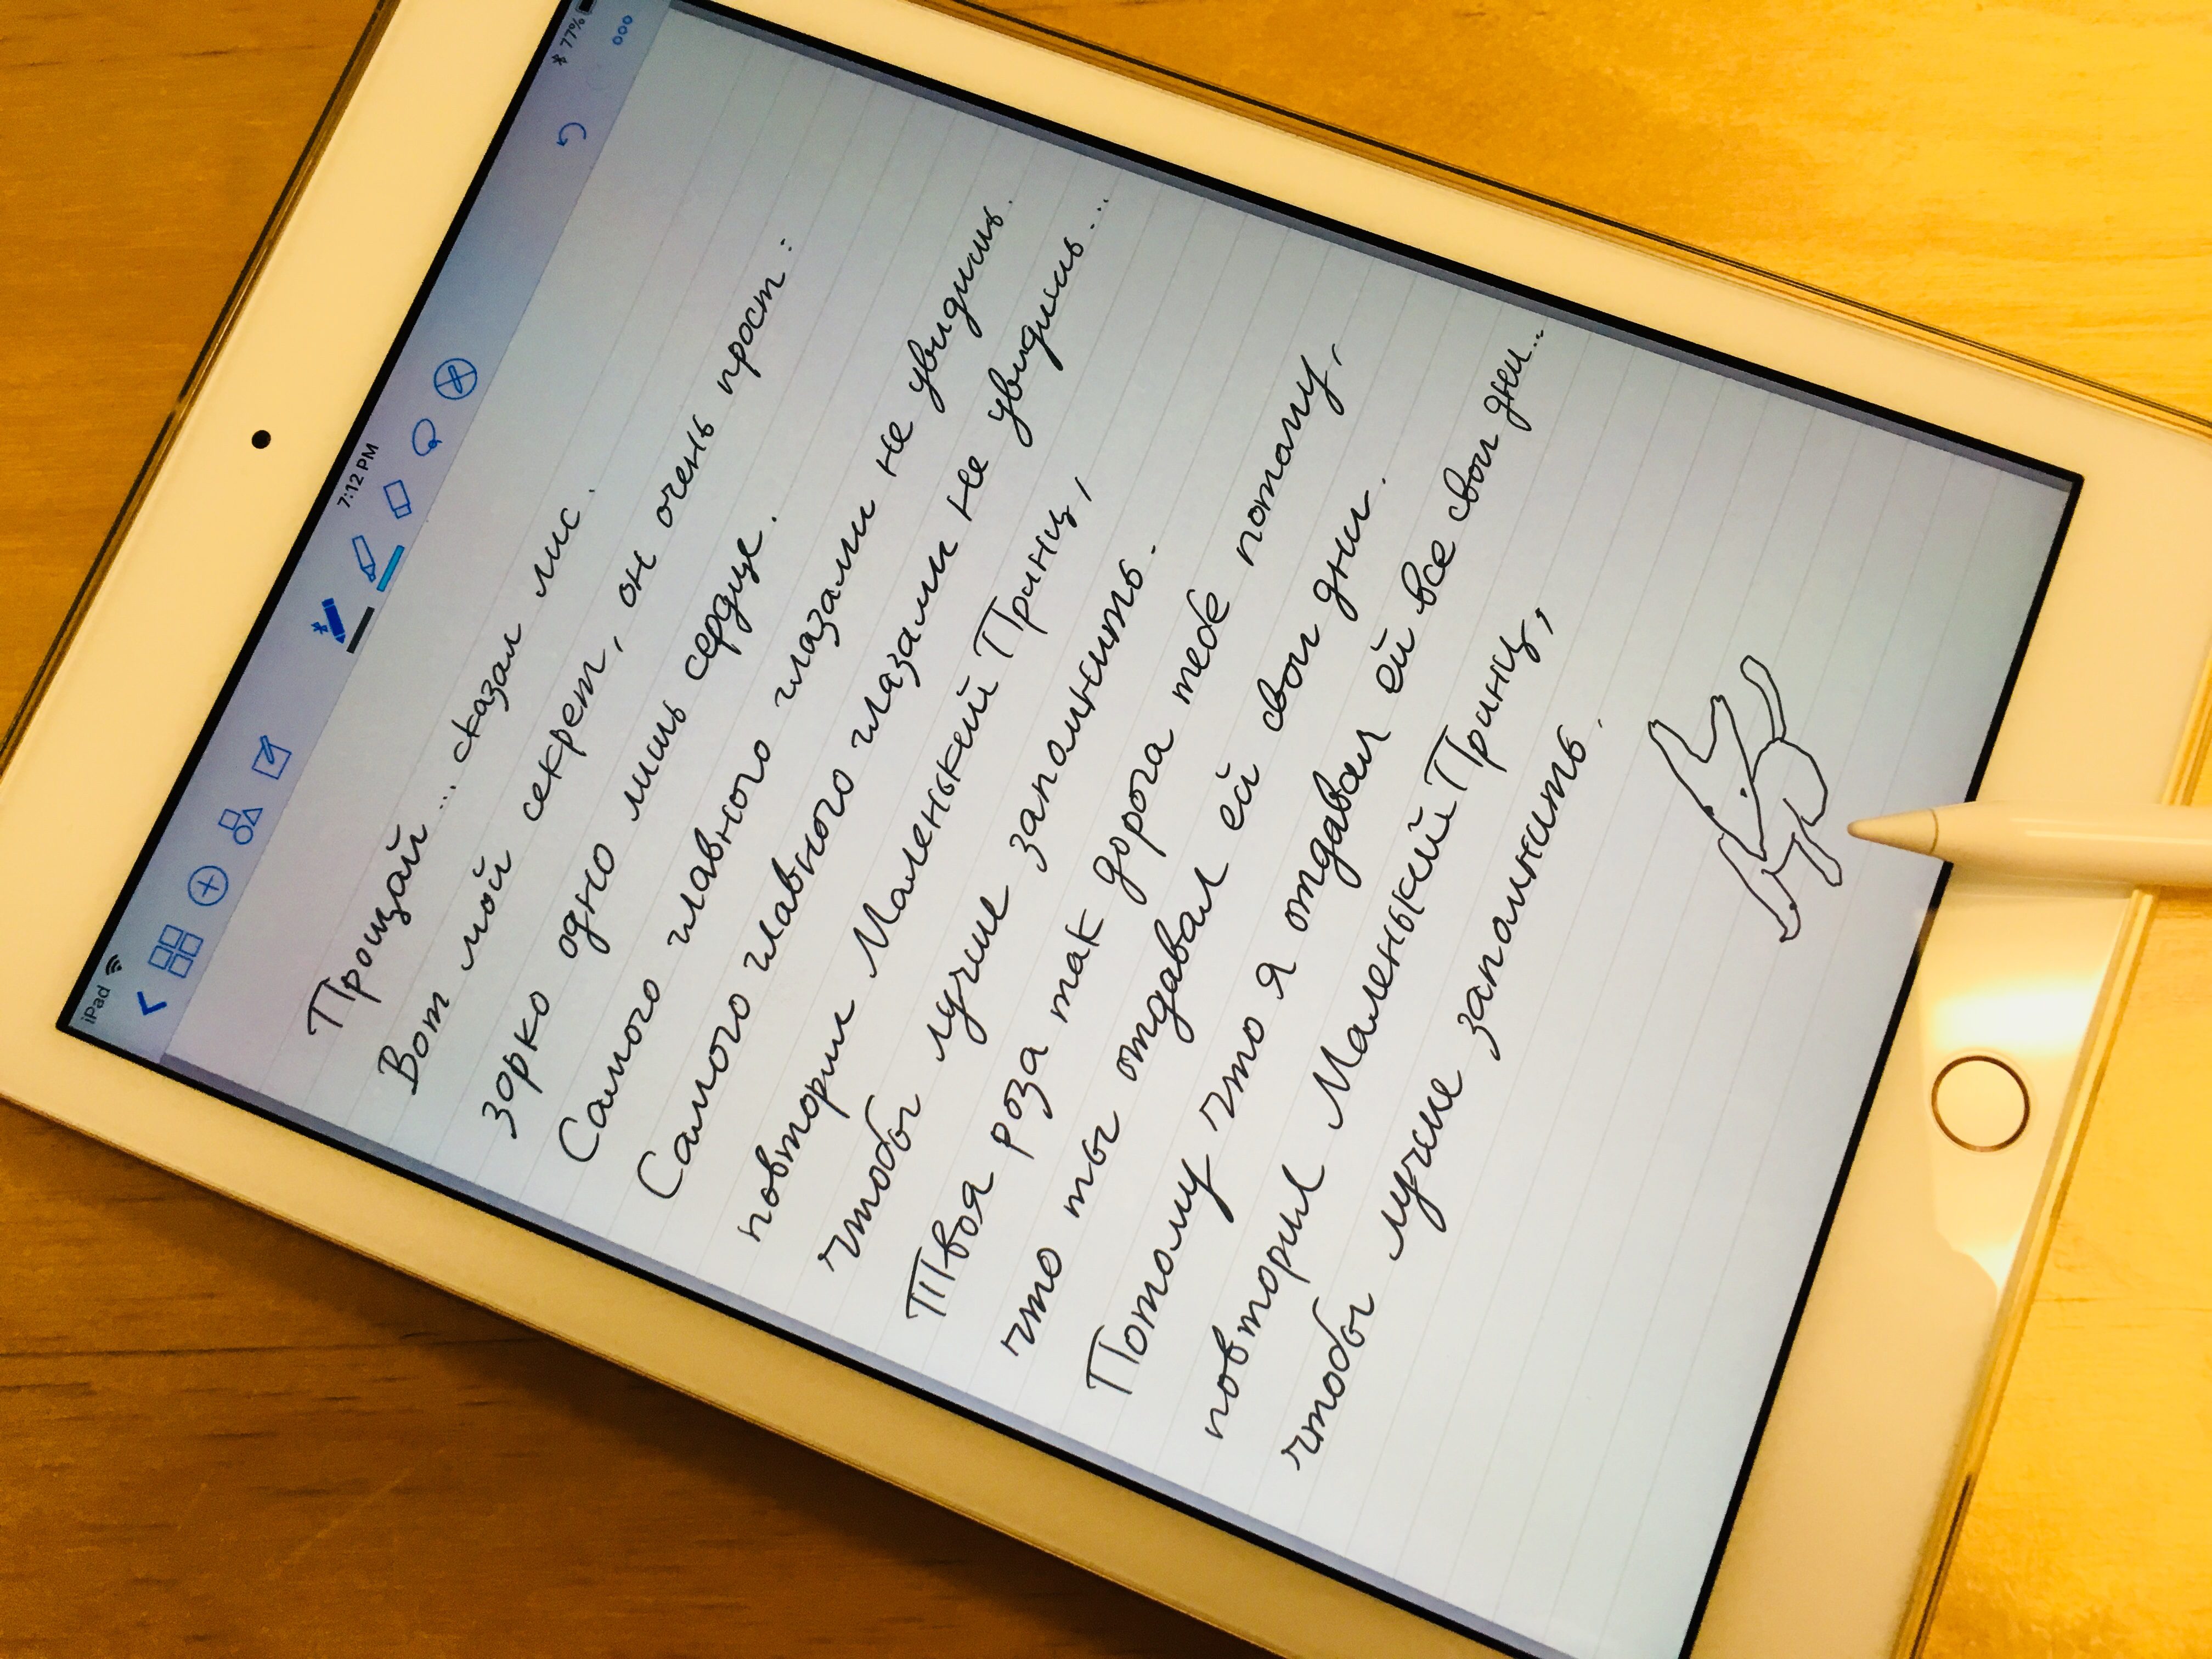 iPad
7:12 PM
77%
Прощай... сказал лис.
Вот мой секрет, он очень прост:
зорко одно лишь сердце.
Самого главного глазами не увидишь.
Самого главного глазами не увидишь...
повторил Маленький Принц,
чтобы лучше запомнить.
Твоя роза так дорога тебе потому,
что ты отдавал ей свои дни.
Потому что я отдавал ей все свои дни...
повторил Маленький Принц,
чтобы лучше запомнить.